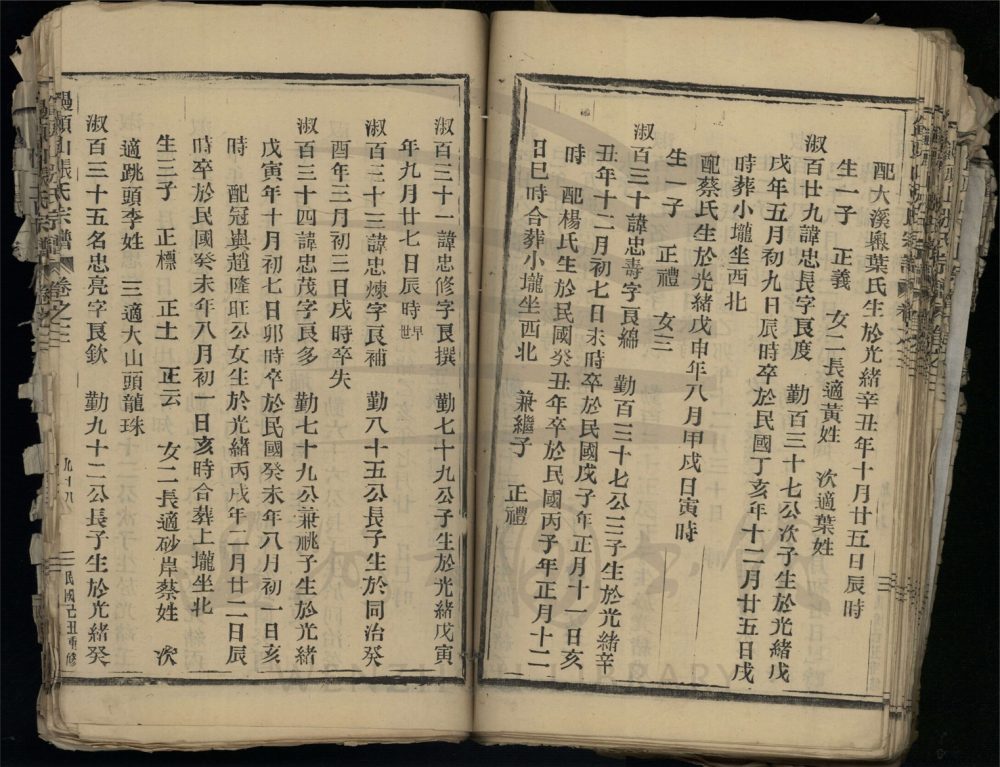 配大溪㙪葉氏生於光緒辛丑年十月廿五日辰時
生一子 正義 女二長適黃姓 次適葉姓
淑百廿九諱忠長字艮度 勤百三十七公次子生於光緒戊
戌年五月初九日辰時卒於民國丁亥年十二月廿五日戌
時葬小壠坐西北
配蔡氏生於光緒戊申年八月甲戌日寅時
生一子 正禮 女三
淑百三十諱忠壽字艮綿 勤百三十七公三子生於光緒辛
丑年十二月初七日未時卒於民國戊子年正月十一日亥
時 配楊氏生於民國癸丑年卒於民國丙子年正月十二
日巳時合葬小壠坐西北 兼繼子 正禮
淑百三十一諱忠修字艮撰 勤七十九公子生於光緒戊寅
年九月廿七日辰時早世
淑百三十三諱忠煉字艮補 勤八十五公長子生於同治癸
酉年三月初三日戌時卒失
淑百三十四諱忠茂字艮多 勤七十九公兼祧子生於光緒
戊寅年十月初七日卯時卒於民國癸未年八月初一日亥
時 配冠㙪趙隆旺公女生於光緒丙戌年二月廿二日辰
時卒於民國癸未年八月初一日亥時合葬上壠坐北
生三子 正標 正土 正云 女二長適砂岸蔡姓 次
適跳頭李姓 三適大山頭龍珠
淑百三十五名忠亮字艮欽 勤九十二公長子生於光緒癸
山張氏宗譜 卷之三
九十八
民國己丑重修
WENZHOU LIBRARY